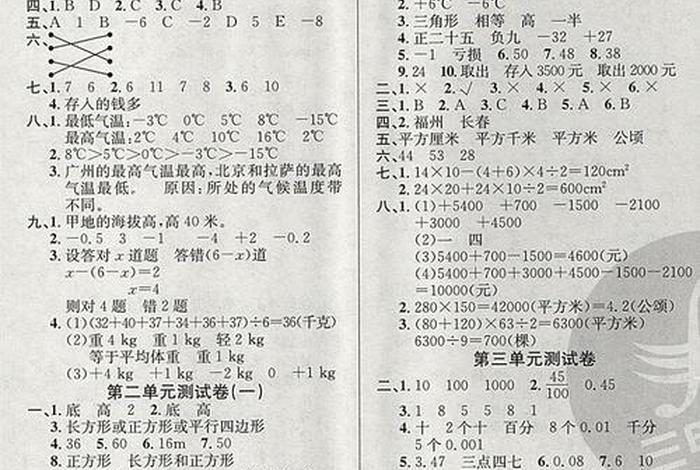 四、1. B D 2. C 3. C 4. B
五、A 1 B －6 C －2 D 5 E －8
六、
七、1. 7 6 2. 6 11 7 8 3. 6 10
4. 存入的钱多
八、1. 最低气温:－3℃ 0℃ 5℃ 8℃ －15℃
最高气温:2℃ 4℃ 10℃ 16℃ 2℃
2. 8℃＞5℃＞0℃＞－3℃＞－15℃
3. 广州的最高气温最高,北京和拉萨的最高
气温最低。 原因:所处的气候温度带
不同。
九、1. 甲地的海拔高,高 40 米。
2. －0.5 3 －1 －4 ＋2 －0.2
3. 设答对 x 道题 答错(6－x)道
x－(6－x)＝2
x＝4
则对 4 题 错 2 题
4. (1)(32＋40＋37＋34＋36＋37)÷6＝36(千克)
(2)重 4 kg 重 1 kg 轻 2 kg
等于平均体重 重 1 kg
(3)＋4 kg ＋1 kg －2 kg 0 ＋1 kg
第二单元测试卷(一)
一、1. 底 高 2 2. 底 高
3. 长方形或正方形或平行四边形
4. 36 5. 60 6. 16m 7. 50
8. 正方形 长方形和正方形
2. ＋6℃ －6℃
3. 三角形 相等 高 一半
4. 正二十五 负九 －32 ＋27
5. －1 亏损 6. 50 7. 48 8. 38
9. 24 10. 取出 存入 3500 元 取出 2000 元
二、1. × 2. √ 3. × 4. × 5. × 6. ×
三、1. B 2. A 3. C 4. B 5. A 6. B
四、2. 福州 长春
五、平方厘米 平方千米 平方米 公顷
六、44 53 28
七、1. 14×10－(4＋6)×4÷2＝120cm²
2. 24×20＋24×10÷2＝600cm²
八、1. (1)＋5400 ＋700 －1500 －2100
＋3000 ＋4500
(2)一 四
(3)5400＋700－1500＝4600(元)
(4)5400＋700＋3000＋4500－1500－2100
＝10000(元)
2. 280×150＝42000(平方米)＝4.2(公顷)
3. (80＋120)×63÷2＝6300(平方米)
6300÷9＝700(棵)
第三单元测试卷
二、1. 10 100 1000 2. 45/100 0.45
3. 1 8 5 5 8 1
4. 十 2 个十 百分 8 个 0.01 千分
5 个 0.001
5. 3.47 三点四七 6. 0.08 7. 6 10